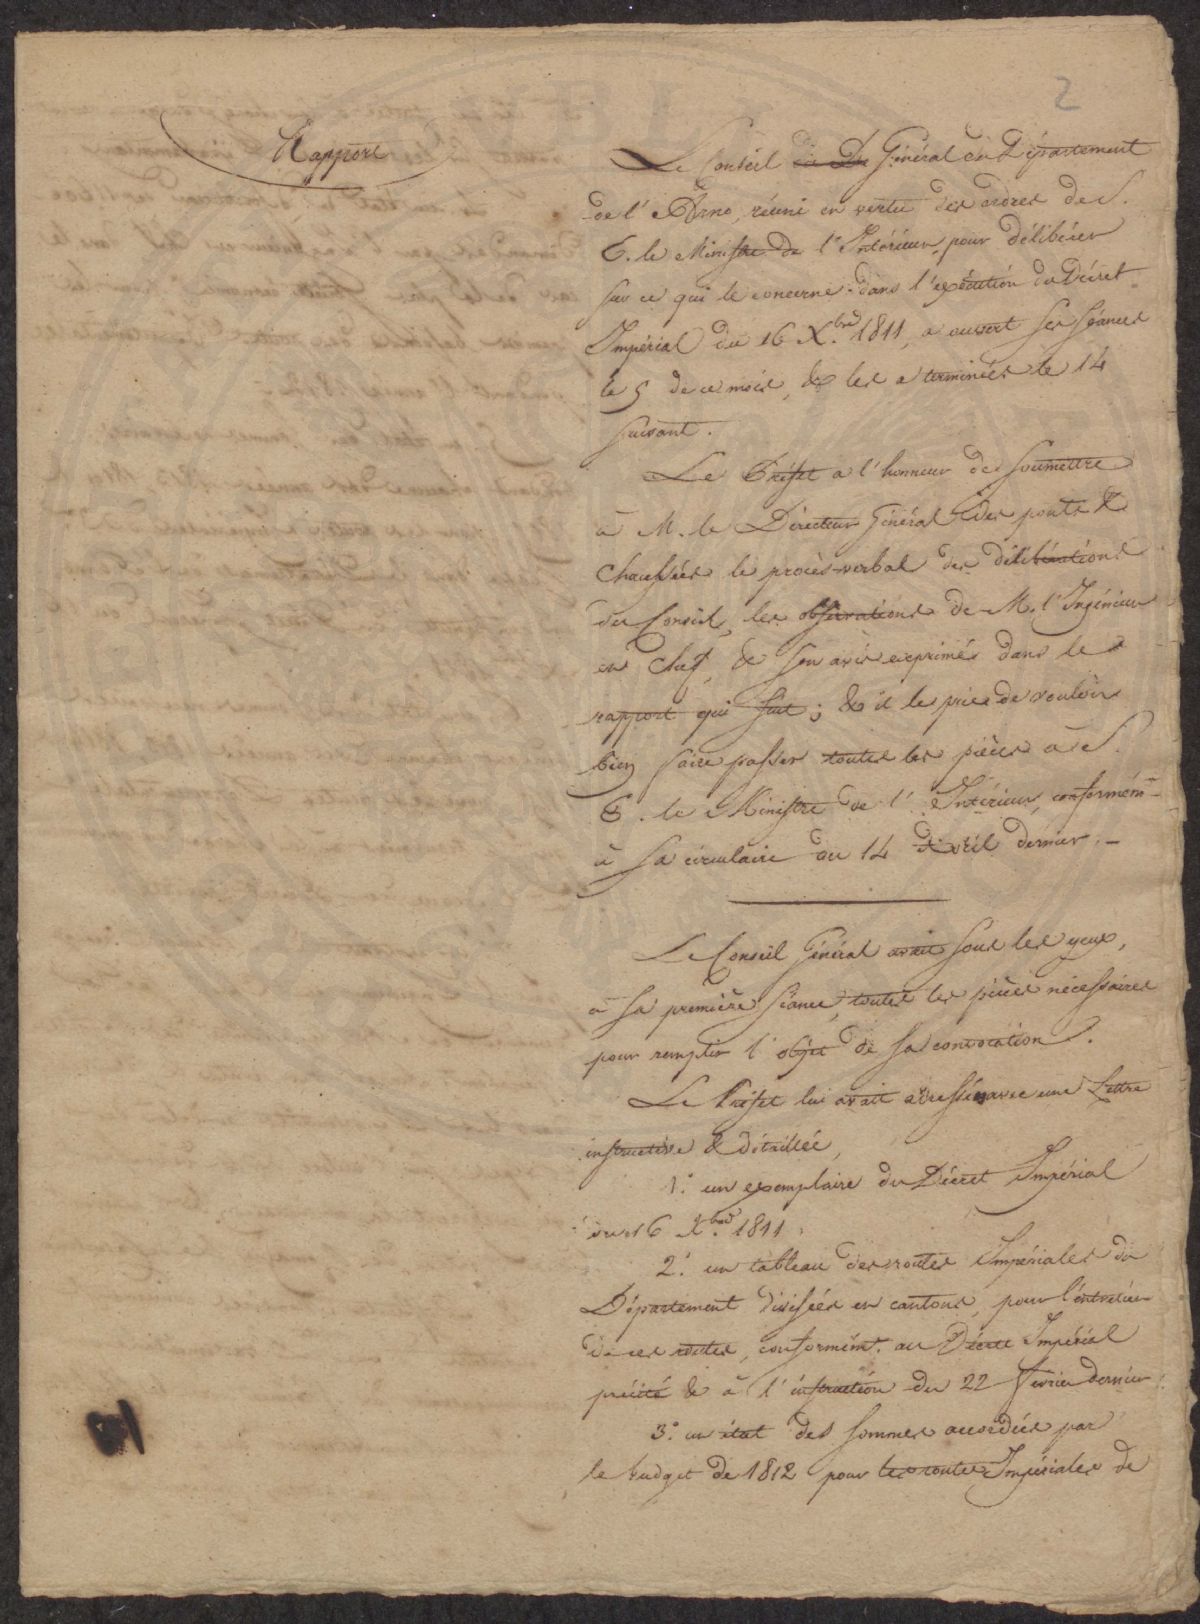 2
Rapport
Le Conseil du Dé Général du Département
de l'Arno, réuni en vertu des ordres de S.
E. le Ministre de l'Intérieur, pour délibérer
sur ce qui le concerne dans l'exécution du Décret
Impérial du 16 X.bre 1811, a ouvert ses séances
le 5 de ce mois, & les a terminées le 14
suivant.
Le Préfet a l'honneur de soumettre
à M. le Directeur Général des ponts &
Chaussées le procès-verbal des délibérations
du Conseil, les observations de M. l'Ingénieur
en Chef, & son avis exprimés dans le
rapport qui suit ; & il le prie de vouloir
bien faire passer toutes les pièces à S.
E. le Ministre de l'Intérieur, conformém.t
à sa circulaire du 14 Avril dernier. —
Le Conseil Général avait sous les yeux,
à sa première séance, toutes les pièces nécessaires
pour remplir l'objet de sa convocation.
Le Préfet lui avait adressé avec une Lettre
instructive & détaillée,
1.° un exemplaire du Décret Impérial
du 16 X.bre 1811.
2.° un tableau des routes Impériales du
Département divisées en cantons, pour l'entretien
de ces routes, conformém.t au Décret Impérial
précité & à l'instruction du 22 Février dernier.
3.° un état des sommes accordées par
le budget de 1812 pour les routes Impériales de